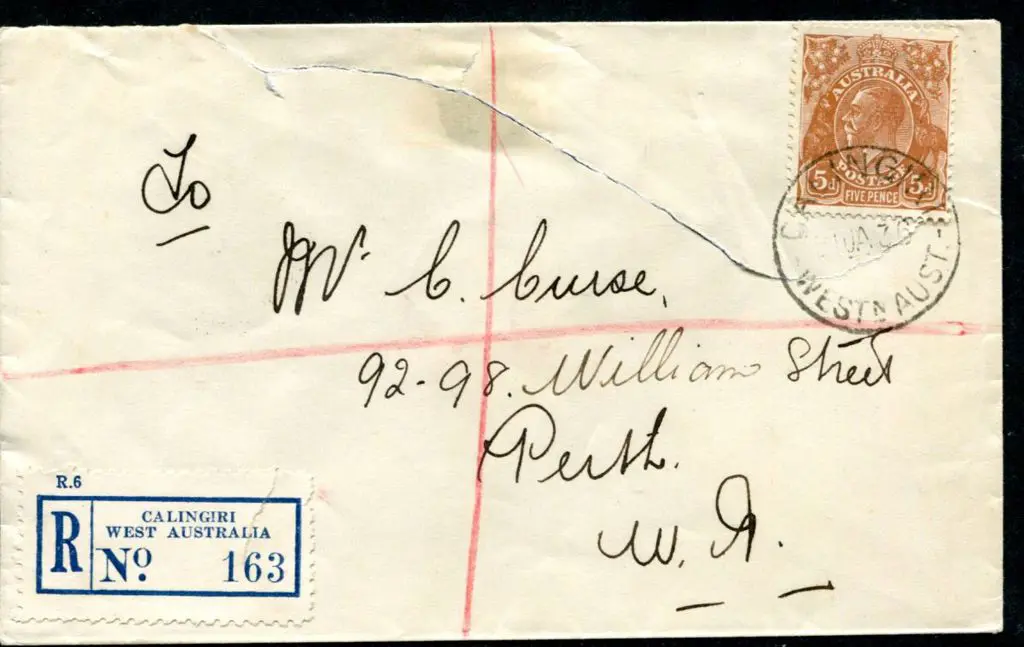 AUSTRALIA
POSTAGE
5d 5d
FIVE PENCE
CALINGIRI
JA.36
WESTN AUST.
To
Mr C. Curse,
92-98. William Street
Perth.
W. A.
R.6
R
CALINGIRI
WEST AUSTRALIA
No. 163